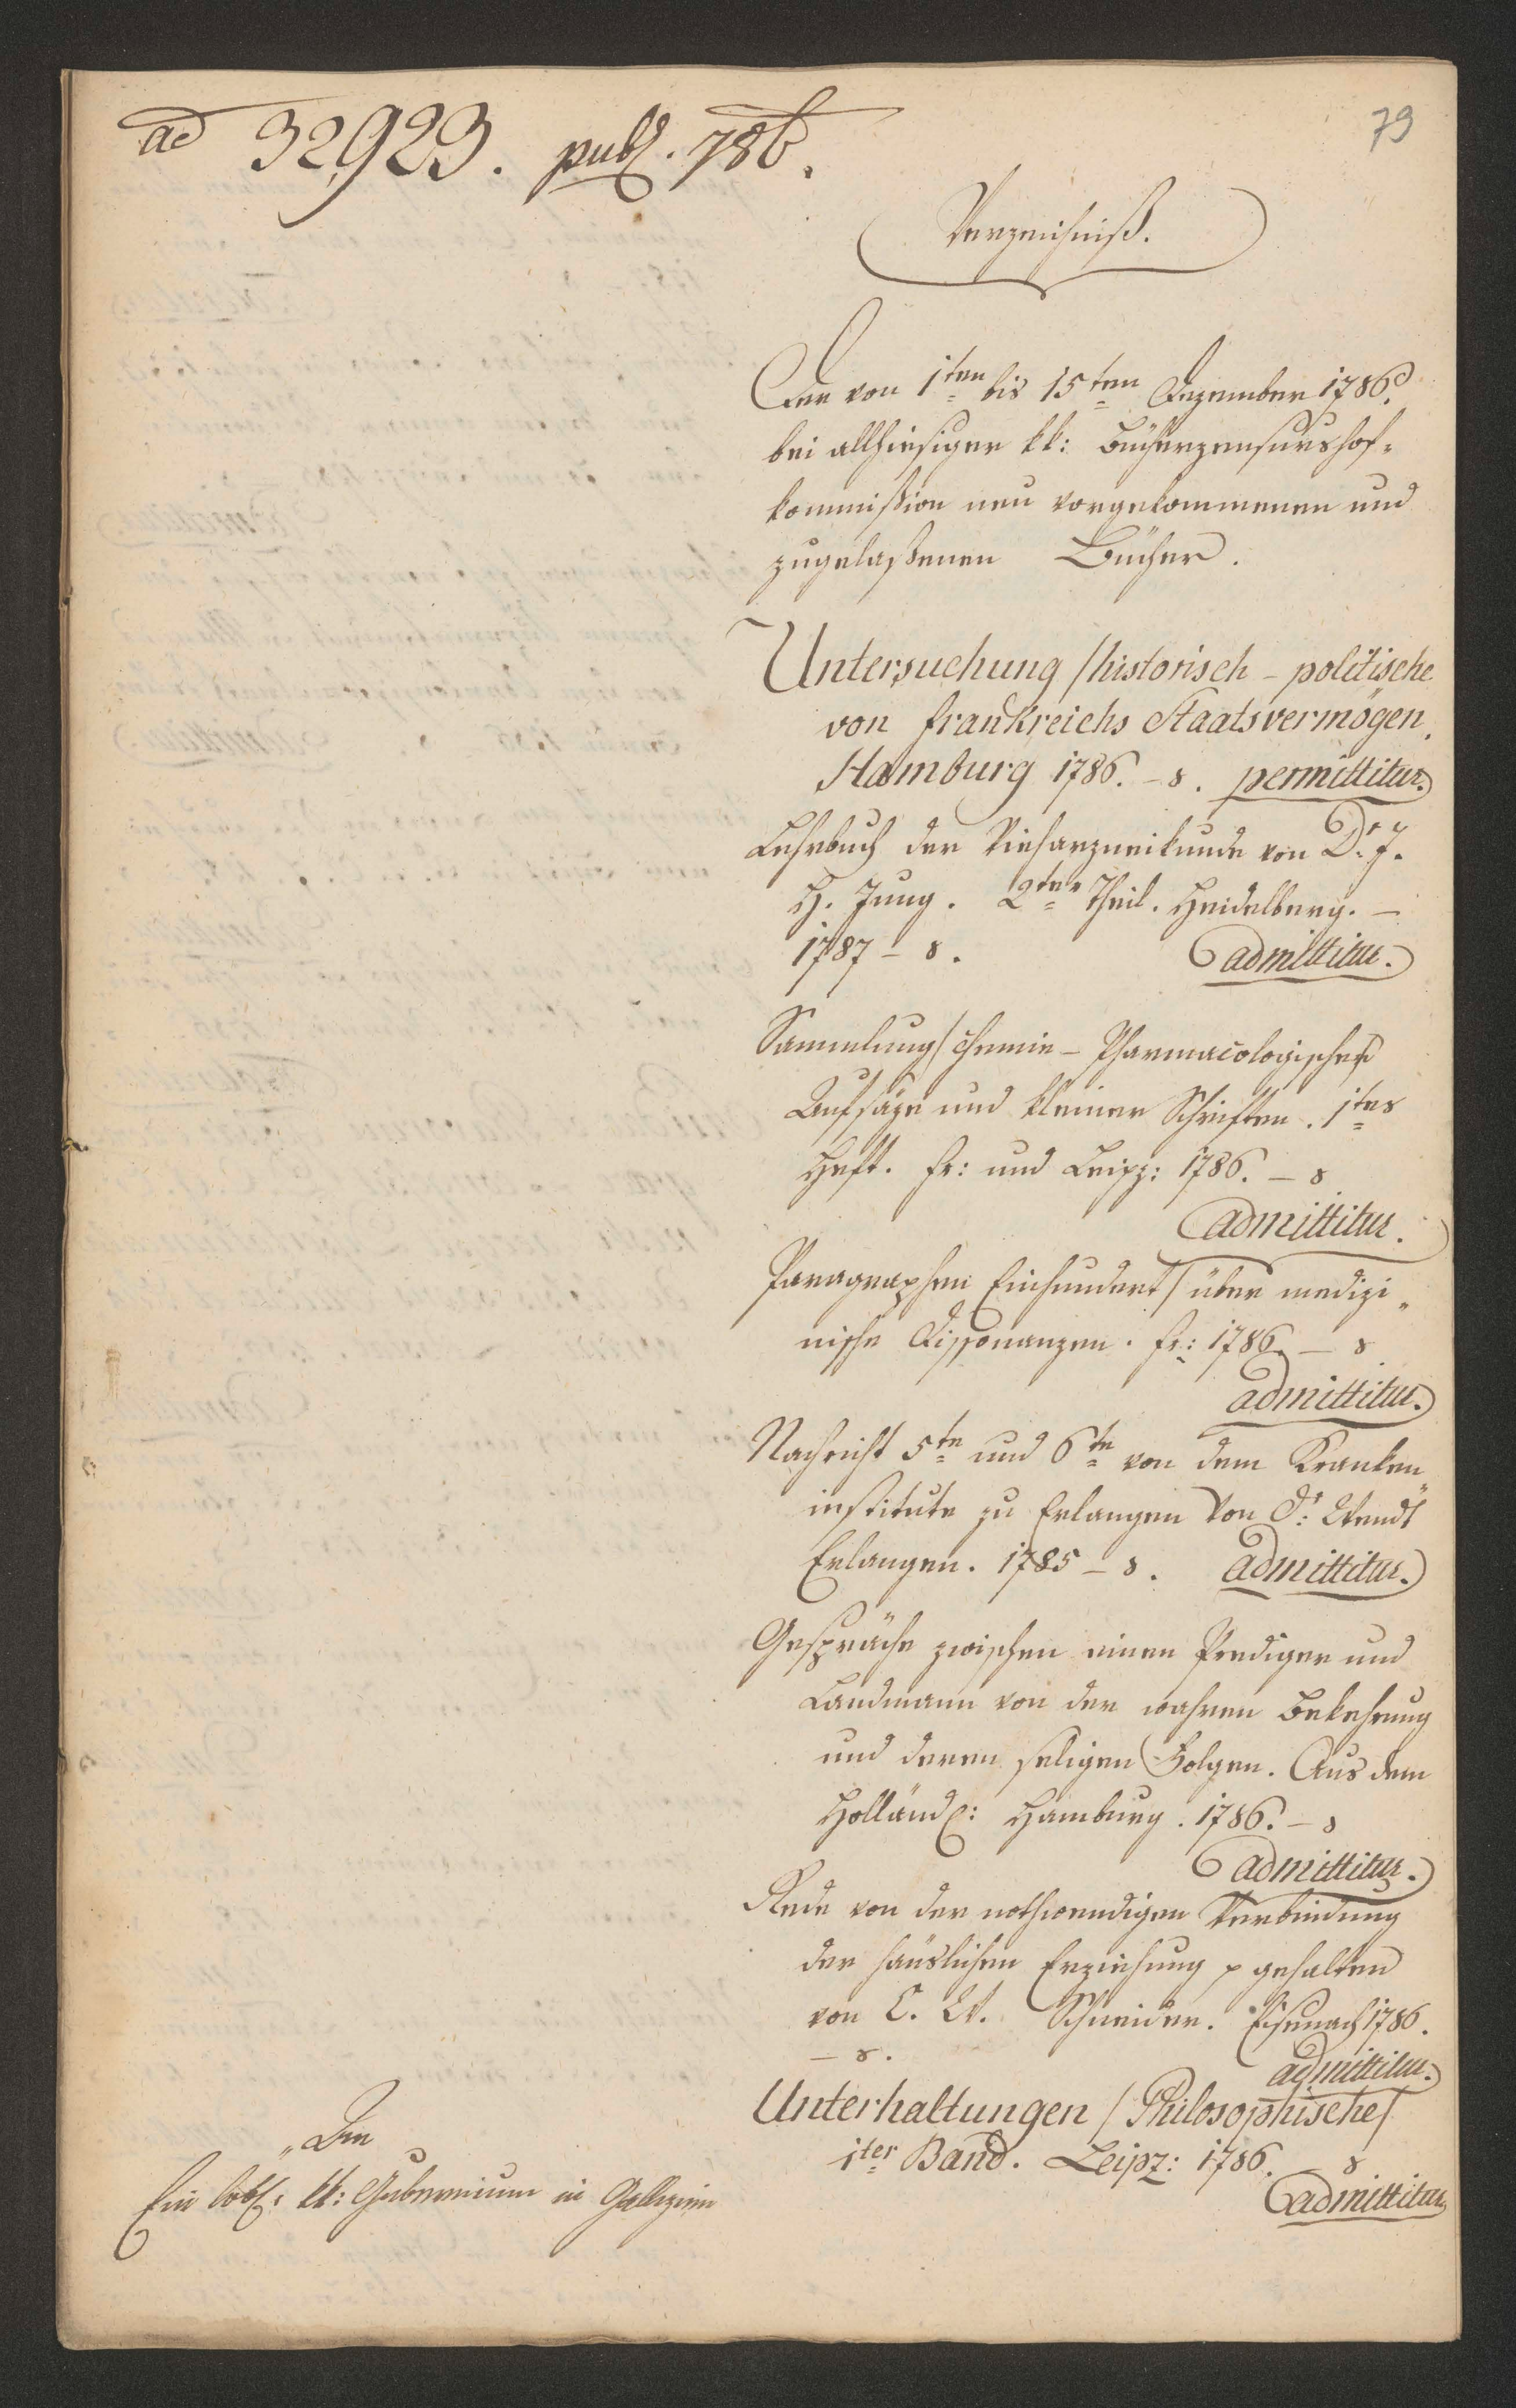 ad 32,923. publ. 786.
79
Verzeichniß.
Der von 1ten bis 15ten Dezember 1786.
bei allhiesiger kk: Bücherzensurshof-
kommißion neu vorgekommenen und
zugelaßenen Bücher.
Untersuchung / historisch - politische
von frankreichs Staatsvermögen.
Hamburg 1786. - 8. permittitur.
Lehrbuch der Vieharzneikunde von Dr. J.
H. Jung. 2ter Theil. Heidelberg. -
1787 - 8. admittitur.
Sammlung / chemie - Pharmacologischer
Aufsäze und kleiner Schriften. 1tes
Heft. Fr: und Leipz: 1786. - 8
admittitur.
Paragraphen Einhundert / über medizi„
nische Dissonanzen. Fr: 1786. - 8
admittitur.
Nachricht 5te und 6te von dem Kranken„
institute zu Erlangen von Dr: Wendt
Erlangen. 1785 - 8. admittitur.
Gespräche zwischen einen Prediger und
Landmann von der wahren Bekehrung
und deren seligen Folgen. Aus dem
Holländ: Hamburg. 1786. - 8
admittitur.
Rede von der nothwendigen Verbindung
der häuslichen Erziehung p gehalten
von C. W. Schneider. Eisenach 1786.
- 8. admittitur.
Unterhaltungen / Philosophische /
1ter Band. Leipz: 1786. 8
admittitur
Ein löbl: kk: Gubernium in Gallizien